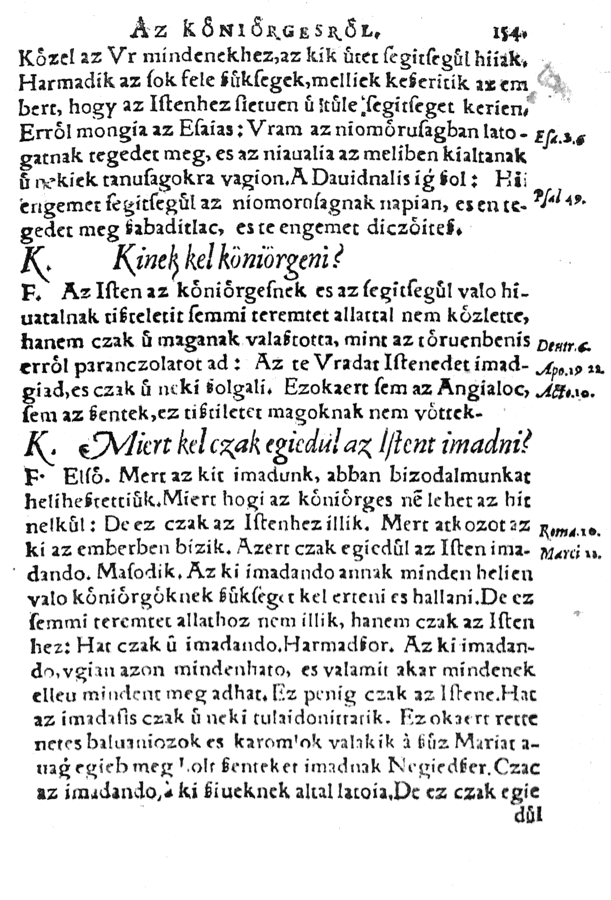 Az KỏNIỏRGESRỏL. 154.
Kỏzel az Vr mindenekhez, az kik ůtet ſegitſegůl hiiak.
Harmadik az ſok fele ßůkſegek, melliek keßeritik az em
bert, hogy az Iſtenhez ſietuen ů tůle ſegitſeget kerien.
Errỏl mongia az Eſaias: Vram az niomỏruſagban lato-
gatnak tegedet meg, es az niaualia az meliben kialtanak Eſa. 2.6
ů nekiek tanuſagokra vagion. A Dauidnal is ig̃ ßol: Hii
engemet ſegitſegůl az niomoroſagnak napian, es en te- Pſal 49.
gedet meg ßabaditlac, es te engemet diczỏiteß.
K. Kinek kel kỏniỏrgeni?
F. Az Iſten az kỏniỏrgeſnek es az ſegitſegůl valo hi-
uatalnak tißteletit ſemmi teremtet allattal nem kỏzlette,
hanem czak ů maganak valaßtotta, mint az tỏruenbenis Deutr. 6.
errỏl paranczolatot ad: Az te Vradat Iſtenedet imad- Apo. 19 22.
giad, es czak ů neki ßolgali. Ezokaert ſem az Angialoc, Acto. 10.
ſem az ßentek, ez tißtiletet magoknak nem vỏttek-
K. Miert kel czak egiedul az Iſtent imadni?
F. Elſỏ. Mert az kit imadunk, abban bizodalmunkat
heliheßtettiůk. Miert hogi az kỏniỏrges nē lehet az hit
nelkůl: De ez czak az Iſtenhez illik. Mert atkozot az Roma. 10.
ki az emberben bizik. Azert czak egiedůl az Iſten ima- Marci 11.
dando. Maſodik. Az ki imadando annak minden helien
valo kỏniỏrgỏknek ßůkſeget kel erteni es hallani. De ez
ſemmi teremtet allathoz nem illik, hanem czak az Iſten
hez: Hat czak ů imadando. Harmadßor. Az ki imadan-
do, vgian azon mindenhato, es valamit akar mindenek
elleu mindent meg adhat. Ez penig czak az Iſtene. Hat
az imadaſis czak ů neki tulaidonittatik. Ezokaert rette
netes baluaniozok es karomlok valakik à ßůz Mariat a-
uag̃ egieb meg holt ßenteket imadnak Negiedßer. Czac
az imadando, à ki ßiueknek altal latoia. De ez czak egie
důl